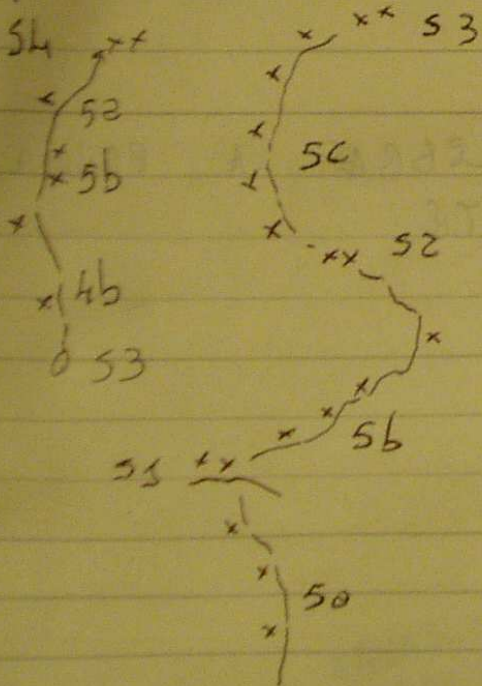 S4
5a
5b
4b
S3
S3
5c
S2
5b
S1
5a